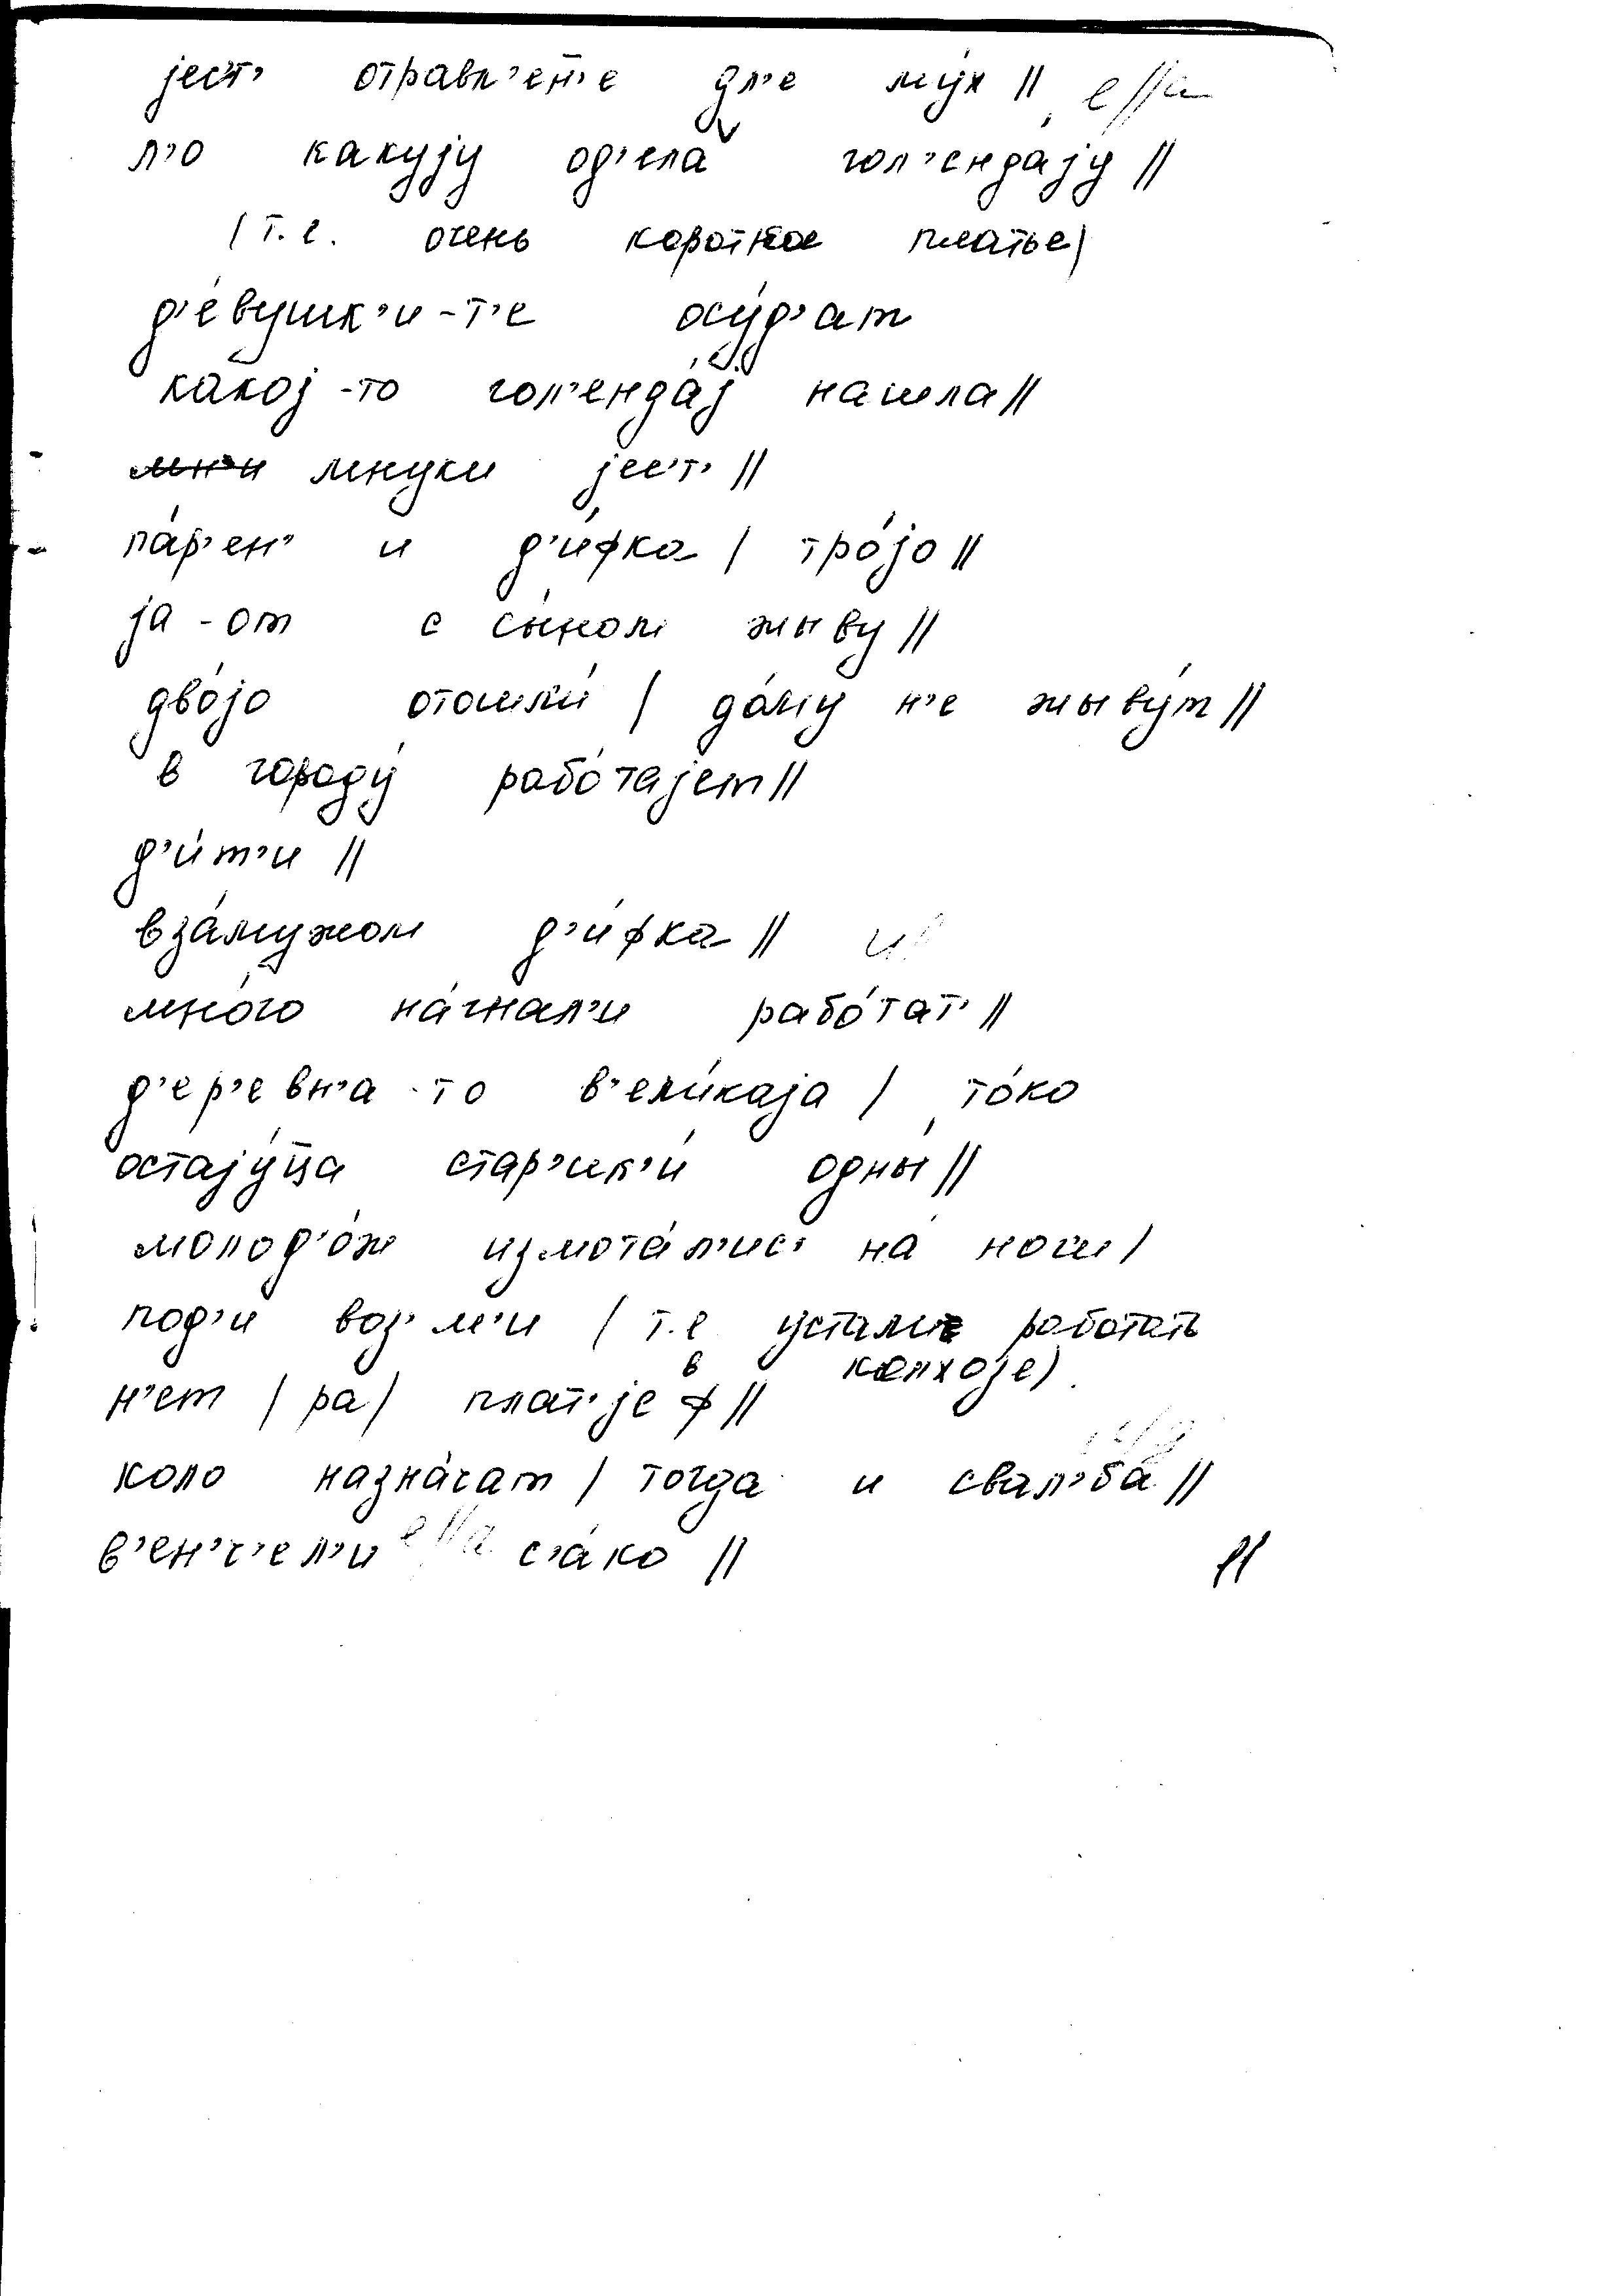 jес'т' отравл'ен'е дл'е му́х || е//а
л'о какуjу од'ела гол'енда́jу ||
(т.е. очень короткое платье)
д'е́вушк'и-т'е осу́д'ат
како́j-то гол'енда́j нашла ||
мнуки jес'т' ||
па́р'ен' и д'и́фка | тро́jо ||
jа-от с сы́ном жыву ||
дво́jо отошли́ | до́му н'е жыву́т ||
в городу́ рабо́таjет ||
д'и́т'и ||
вза́мужом д'и́фка ||
мно́го на́чнал'и рабо́тат' ||
д'ер'евн'а-то в'ели́каjа | то́ко
остаjу́ца стар'ик'и́ одны́ ||
молод'о́ж измота́л'ис' на́ ноги |
под'и воз'м'и (т.е устали работать
в колхозе)
н'ет | ра | плат'jе ф ||
коло назна́чат | тогда и свал'ба́ ||
в'ен'ч'ел'и е//а с'а́ко || ||